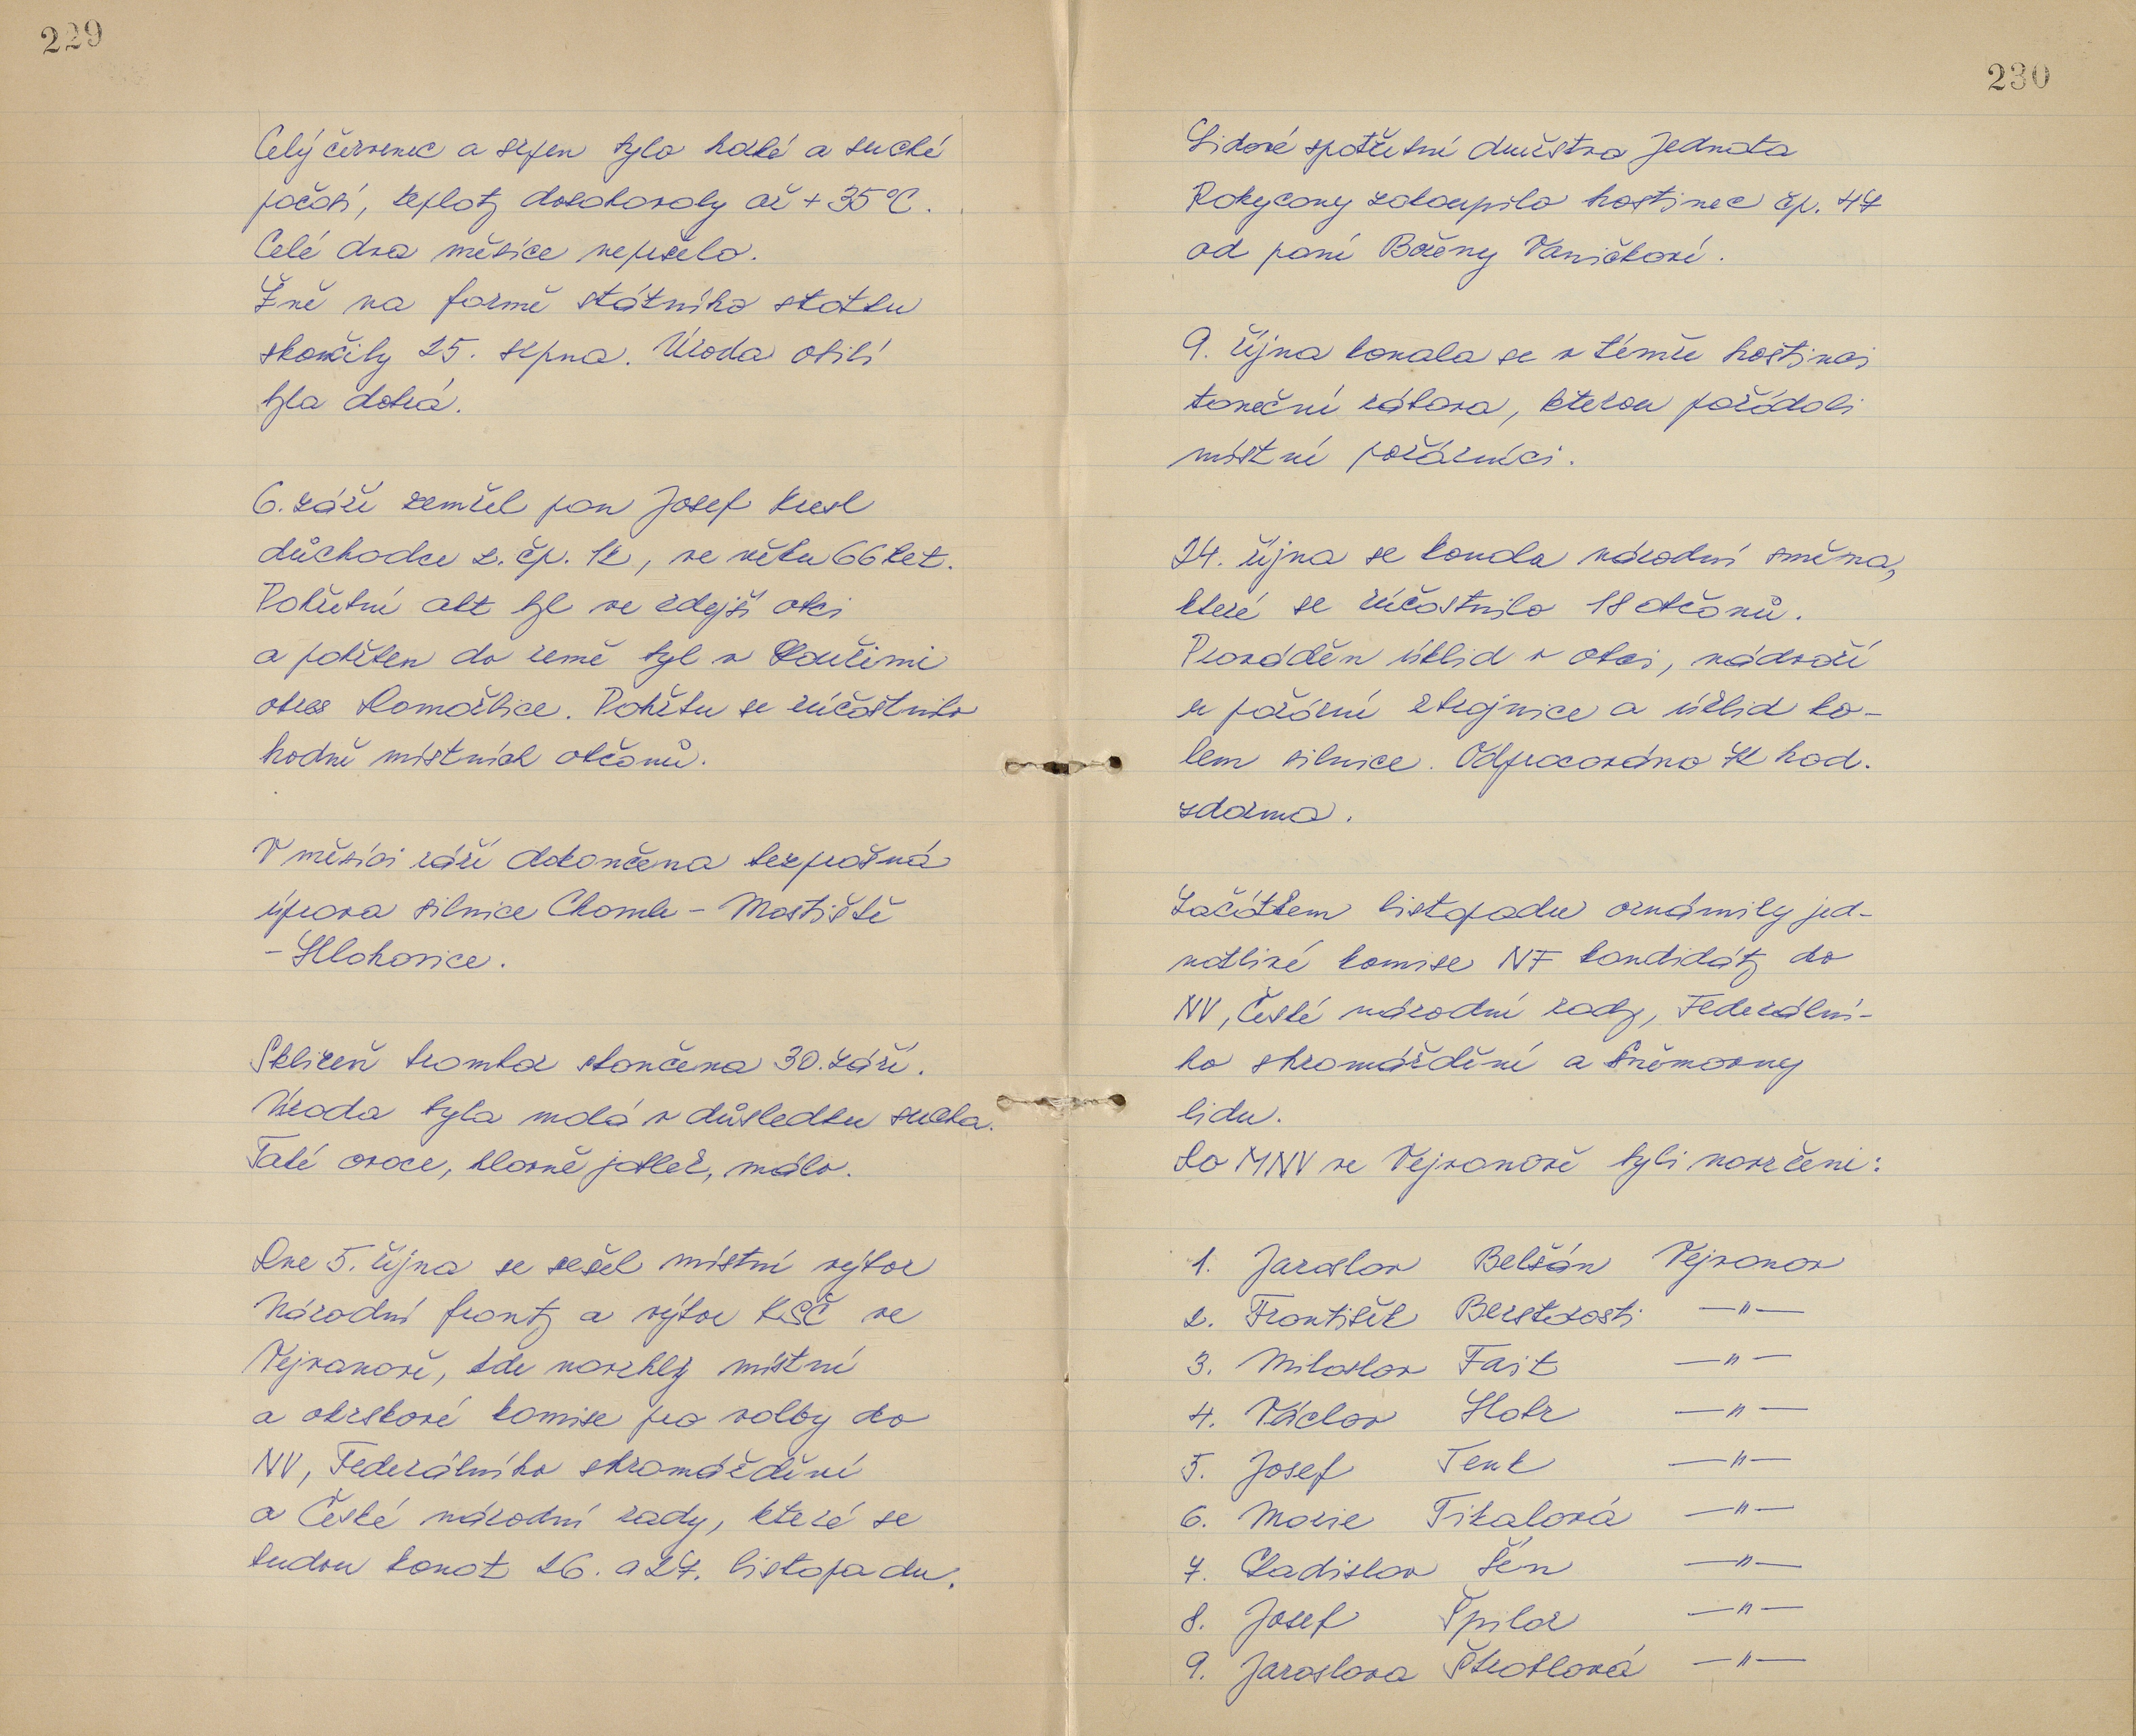 229
Celý červenec a srpen bylo horké a suché
počasí, teploty dosahovaly až + 35°C.
Celé dva měsíce nepršelo.
Žně na farmě státního statku
skončily 25. srpna. Úroda obilí
byla dobrá.
6. září zemřel pan Josef
důchodce z. čp. 12, ve věku 66 let.
Pohřební akt byl ve zdejší obci
a pohřben do země byl v Loučimi
okres Domažlice. Pohřbu se zúčastnilo
hodně místních občanů.
V měsíci září dokončena bezprašná
úprava silnice Chomle - Mostiště
- Hlohovice.
Sklizeň brambor skončena 30. září.
Úroda byla malá v důsledku sucha.
Také ovoce, hlavně jablek, málo.
Dne 5. října se sešel místní výbor
Národní fronty a výbor KSČ ve
Vejvanově, kde navrhly místní
a okrskové komise pro volby do
NV, Federálního shromáždění
a České národní rady, které se
budou konat 26. a 27. listopadu.
230
Lidové spotřební družstvo Jednota
Rokycany zakoupilo hostinec čp. 47
od paní Boženy Vaníčkové.
9. října konala se v témže hostinci
taneční zábava, kterou pořádali
místní požárníci.
24. října se konala národní směna,
které se zúčastnilo 18 občanů.
Prováděn úklid v obci, nádvoří
u požární zbrojnice a úklid ko-
lem silnice. Odpracováno 72 hod.
zdarma.
Začátkem listopadu oznámily jed-
notlivé komise NF kandidáty do
NV, České národní rady, Federální-
ho shromáždění a Sněmovny
lidu.
Do MNV ve Vejvanově byli navrženi:
1. Jaroslav Belšán Vejvanov
2. František Berstdosti —"—
3. Miloslav Fait —"—
4. Václav Hobr —"—
5. Josef Tenk —"—
6. Marie Tikalová —"—
7. Ladislav Šén —"—
8. Josef Špilar —"—
9. Jaroslava Škrablová —"—